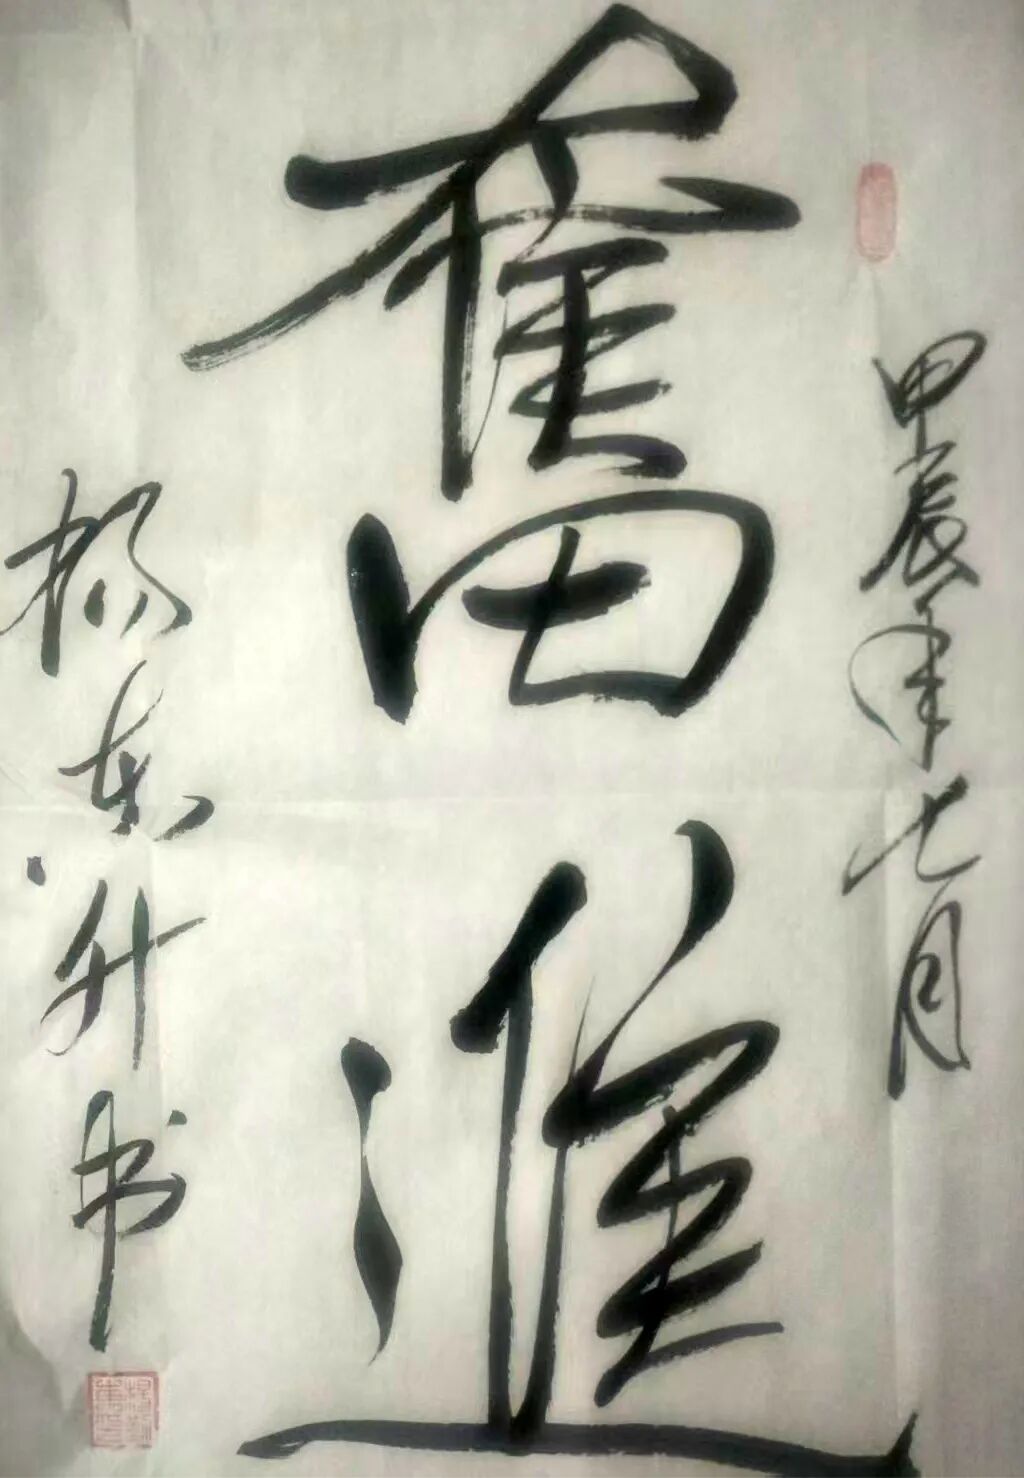 甲辰年七月
奮進
杨东升书